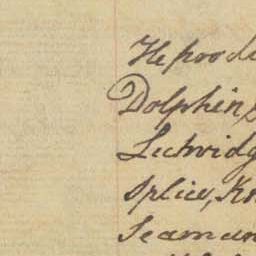 He proo
Dolphin,
Lutwidg
Splice, Kn
Seaman